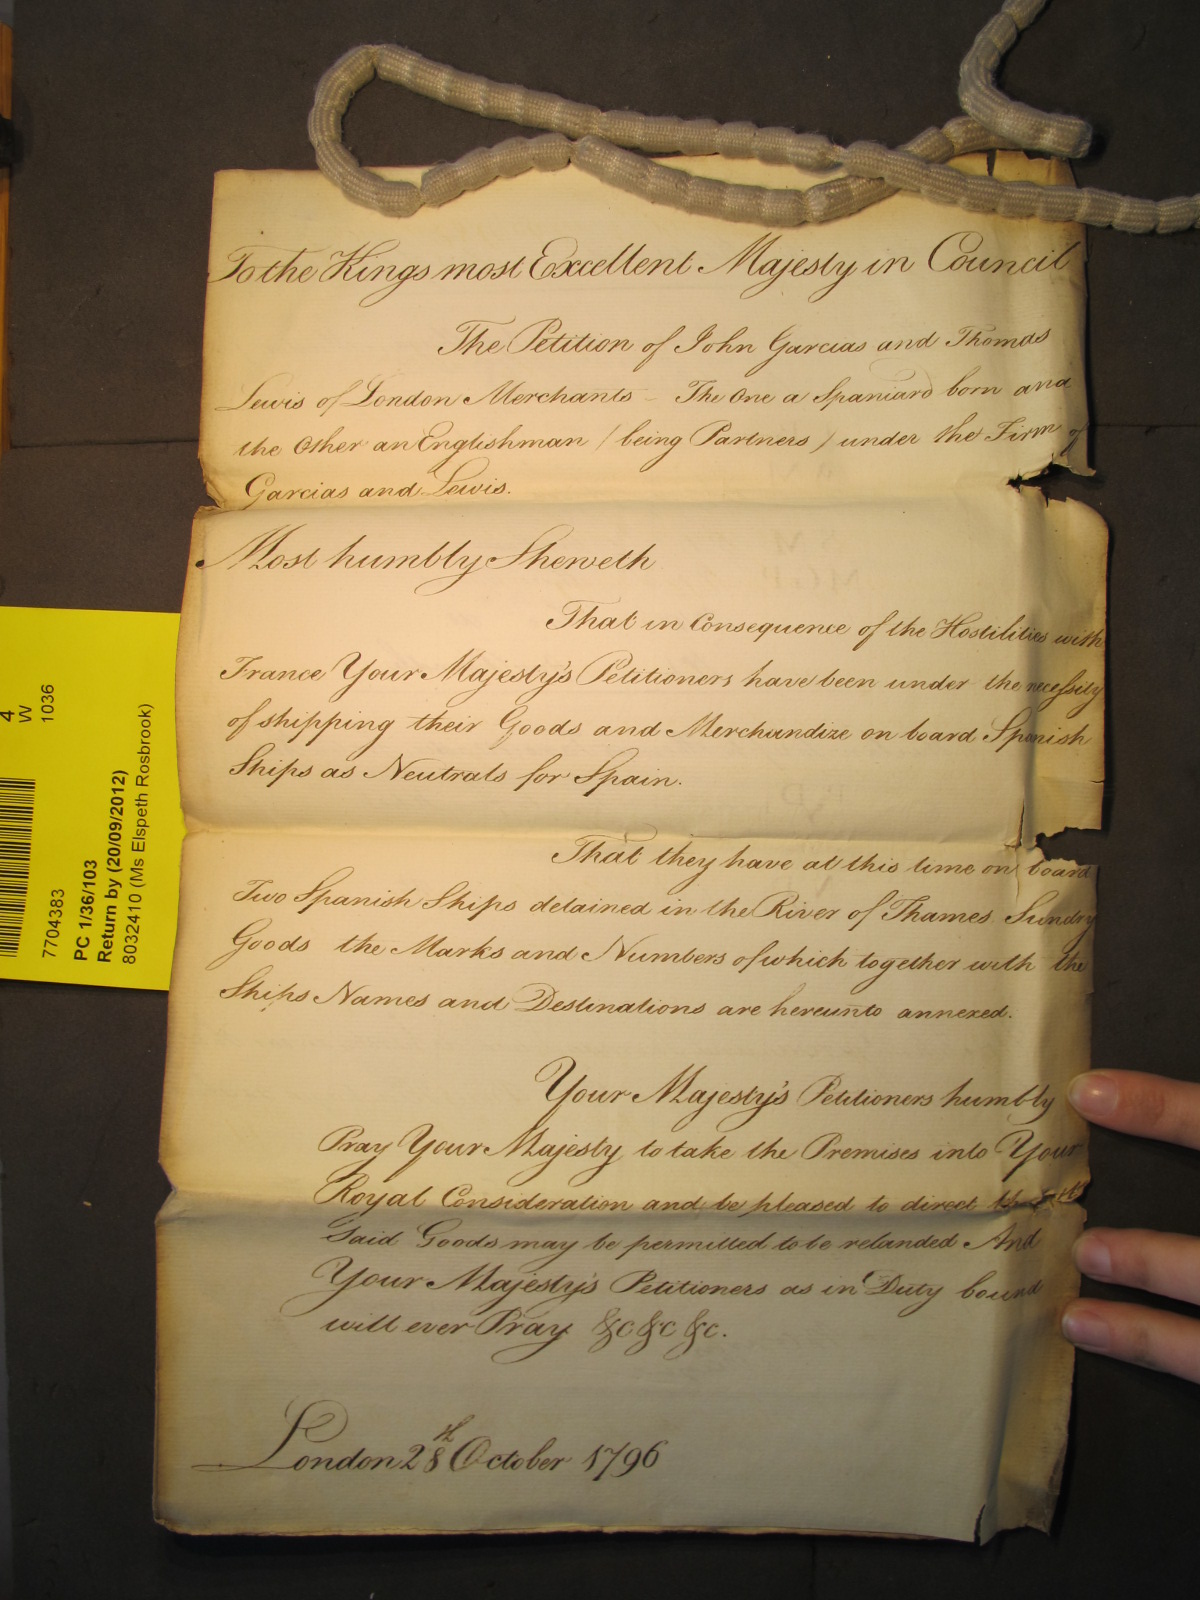 To the Kings most Excellent Majesty in Council
The Petition of John Garcias and Thomas
Lewis of London Merchants - The One a Spaniard born and
the Other an Englishman / being Partners / under the Firm of
Garcias and Lewis.
Most humbly Sheweth
That in Consequence of the Hostilities with
France Your Majesty's Petitioners have been under the necessity
of shipping their Goods and Merchandize on board Spanish
Ships as Neutrals for Spain.
That they have at this time on board
Two Spanish Ships detained in the River of Thames Sundry
Goods the Marks and Numbers of which together with the
Ships Names and Destinations are hereunto annexed.
Your Majesty's Petitioners humbly
Pray Your Majesty to take the Premises into Your
Royal Consideration and be pleased to direct
Said Goods may be permitted to be relanded And
Your Majesty's Petitioners as in Duty bound
will ever Pray &c &c &c.
London 28th October 1796
4
W
1036
7704383
PC 1/36/103
Return by (20/09/2012)
8032410 (Ms Elspeth Rosbrook)